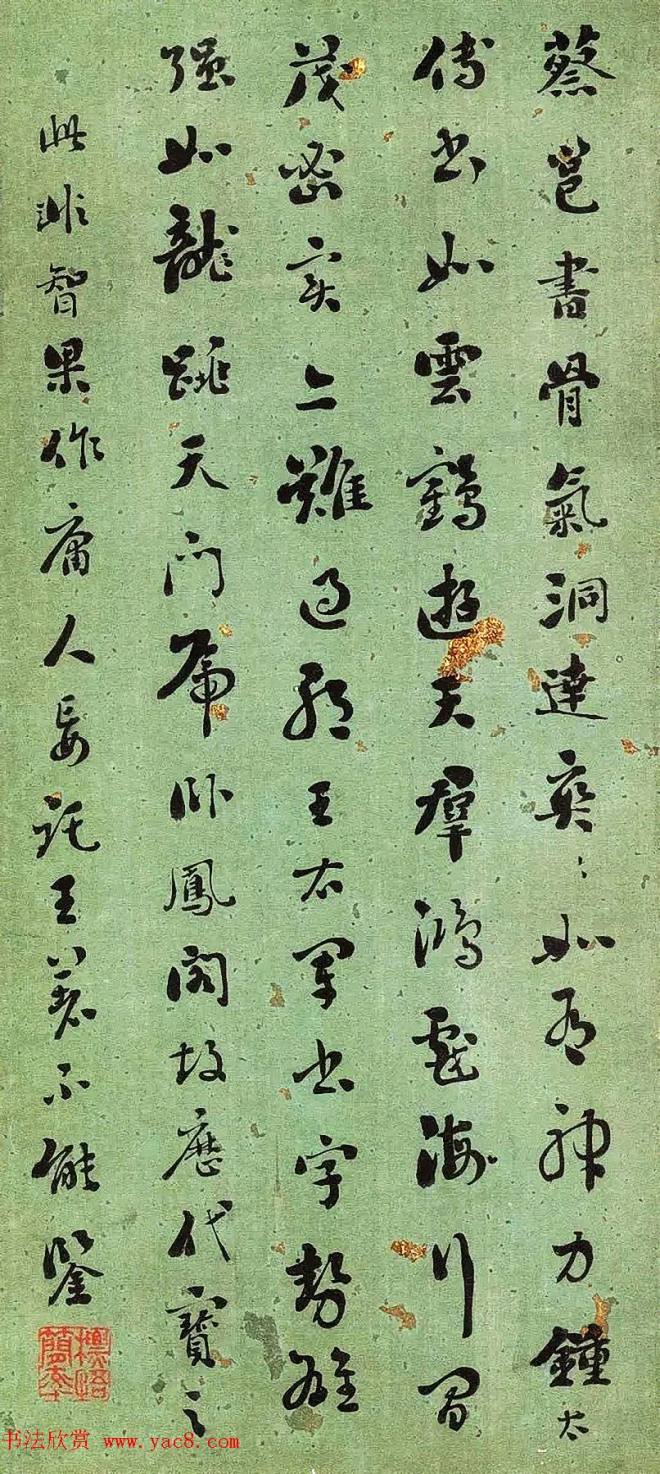 蔡邕書骨氣洞達爽〻如有神力鍾太
傅書如雲鶴遊天羣鴻戲海行間
茂密實亦難過耶王右軍書字勢雄
强如龍跳天門虎卧鳳閣故歷代寶之
此非智果作庸人妄託王著不能鑒
书法欣赏 www.yac8.com